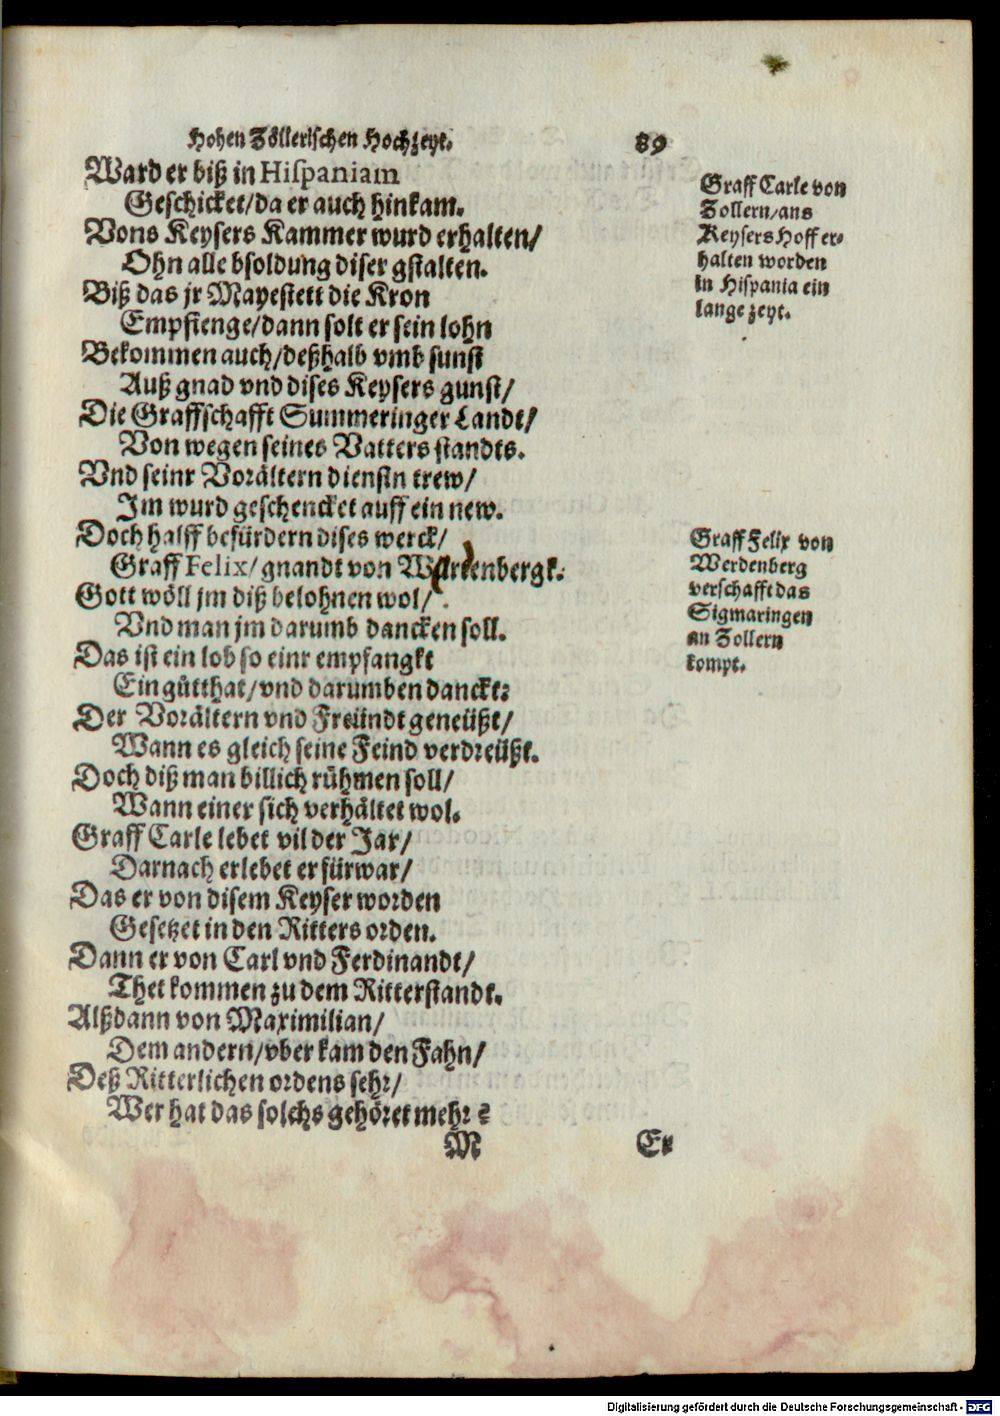 Hohen Zöllerischen Hochzeyt. 89
Ward er biß in Hispaniam
Geschicket/da er auch hinkam.
Vons Keysers Kammer wurd erhalten/
Ohn alle bsoldung diser gstalten.
Biß das jr Mayestett die Kron
Empfienge/dann solt er sein lohn
Bekommen auch/deßhalb vmb sunst
Auß gnad vnd dises Keysers gunst/
Die Graffschafft Summeringer Landt/
Von wegen seines Vatters standts.
Vnd seinr Vorältern dienstn trew/
Im wurd geschencket auff ein new.
Doch halff befürdern dises werck/
Graff Felix/gnandt von Werdenbergk:
Gott wöll jm diß belohnen wol/
Vnd man jm darumb dancken soll.
Das ist ein lob so einr empfangkt
Ein gütthat/vnd darumben danckt:
Der Vorältern vnd Freündt geneüßt/
Wann es gleich seine Feind verdreüßt.
Doch diß man billich rühmen soll/
Wann einer sich verhältet wol.
Graff Carle lebet vil der Jar/
Darnach erlebet er fürwar/
Das er von disem Keyser worden
Gesetzet in den Ritters orden.
Dann er von Carl vnd Ferdinandt/
Thet kommen zu dem Ritterstandt.
Alßdann von Maximilian/
Dem andern/vber kam den Fahn/
Deß Ritterlichen ordens sehr/
Wer hat das solchs gehöret mehr?
M Er
Graff Carle von
Zollern/ans
Keysers Hoff er-
halten worden
in Hispania ein
lange zeyt.
Graff Felix von
Werdenberg
verschafft das
Sigmaringen
an Zollern
kompt.
Digitalisierung gefördert durch die Deutsche Forschungsgemeinschaft - DFG